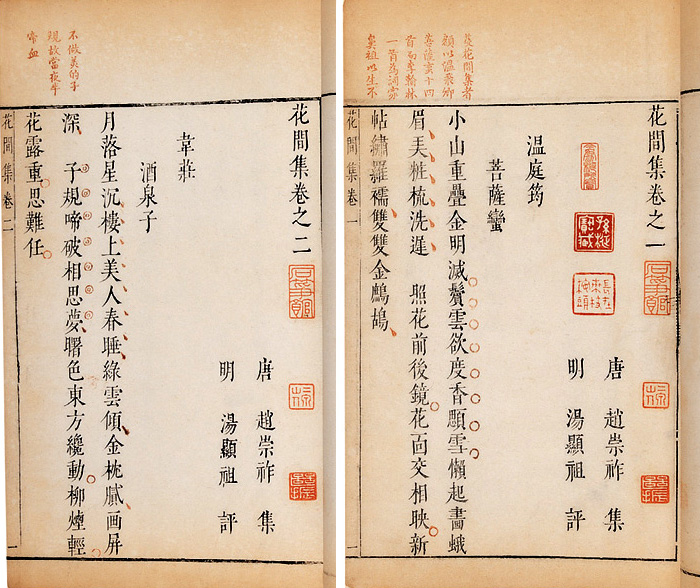 芟花間集者
額以溫飛卿
菩薩蠻十四
首而李翰林
一首為詞家
鼻祖以生不
花間集卷之一
唐 趙崇祚 集
明 湯顯祖 評
溫庭筠
菩薩蠻
小山重疊金明滅鬢雲欲度香顋雪懶起畫蛾
眉弄粧梳洗遲 照花前後鏡花面交相映新
帖繡羅襦雙雙金鷓鴣
花間集 卷一
不做美的子
規故當夜半
啼血
花間集卷之二
唐 趙崇祚 集
明 湯顯祖 評
韋莊
酒泉子
月落星沉樓上美人春睡綠雲傾金枕膩画屏
深 子規啼破相思夢曙色東方纔動柳煙輕
花露重思難任
花間集 卷二